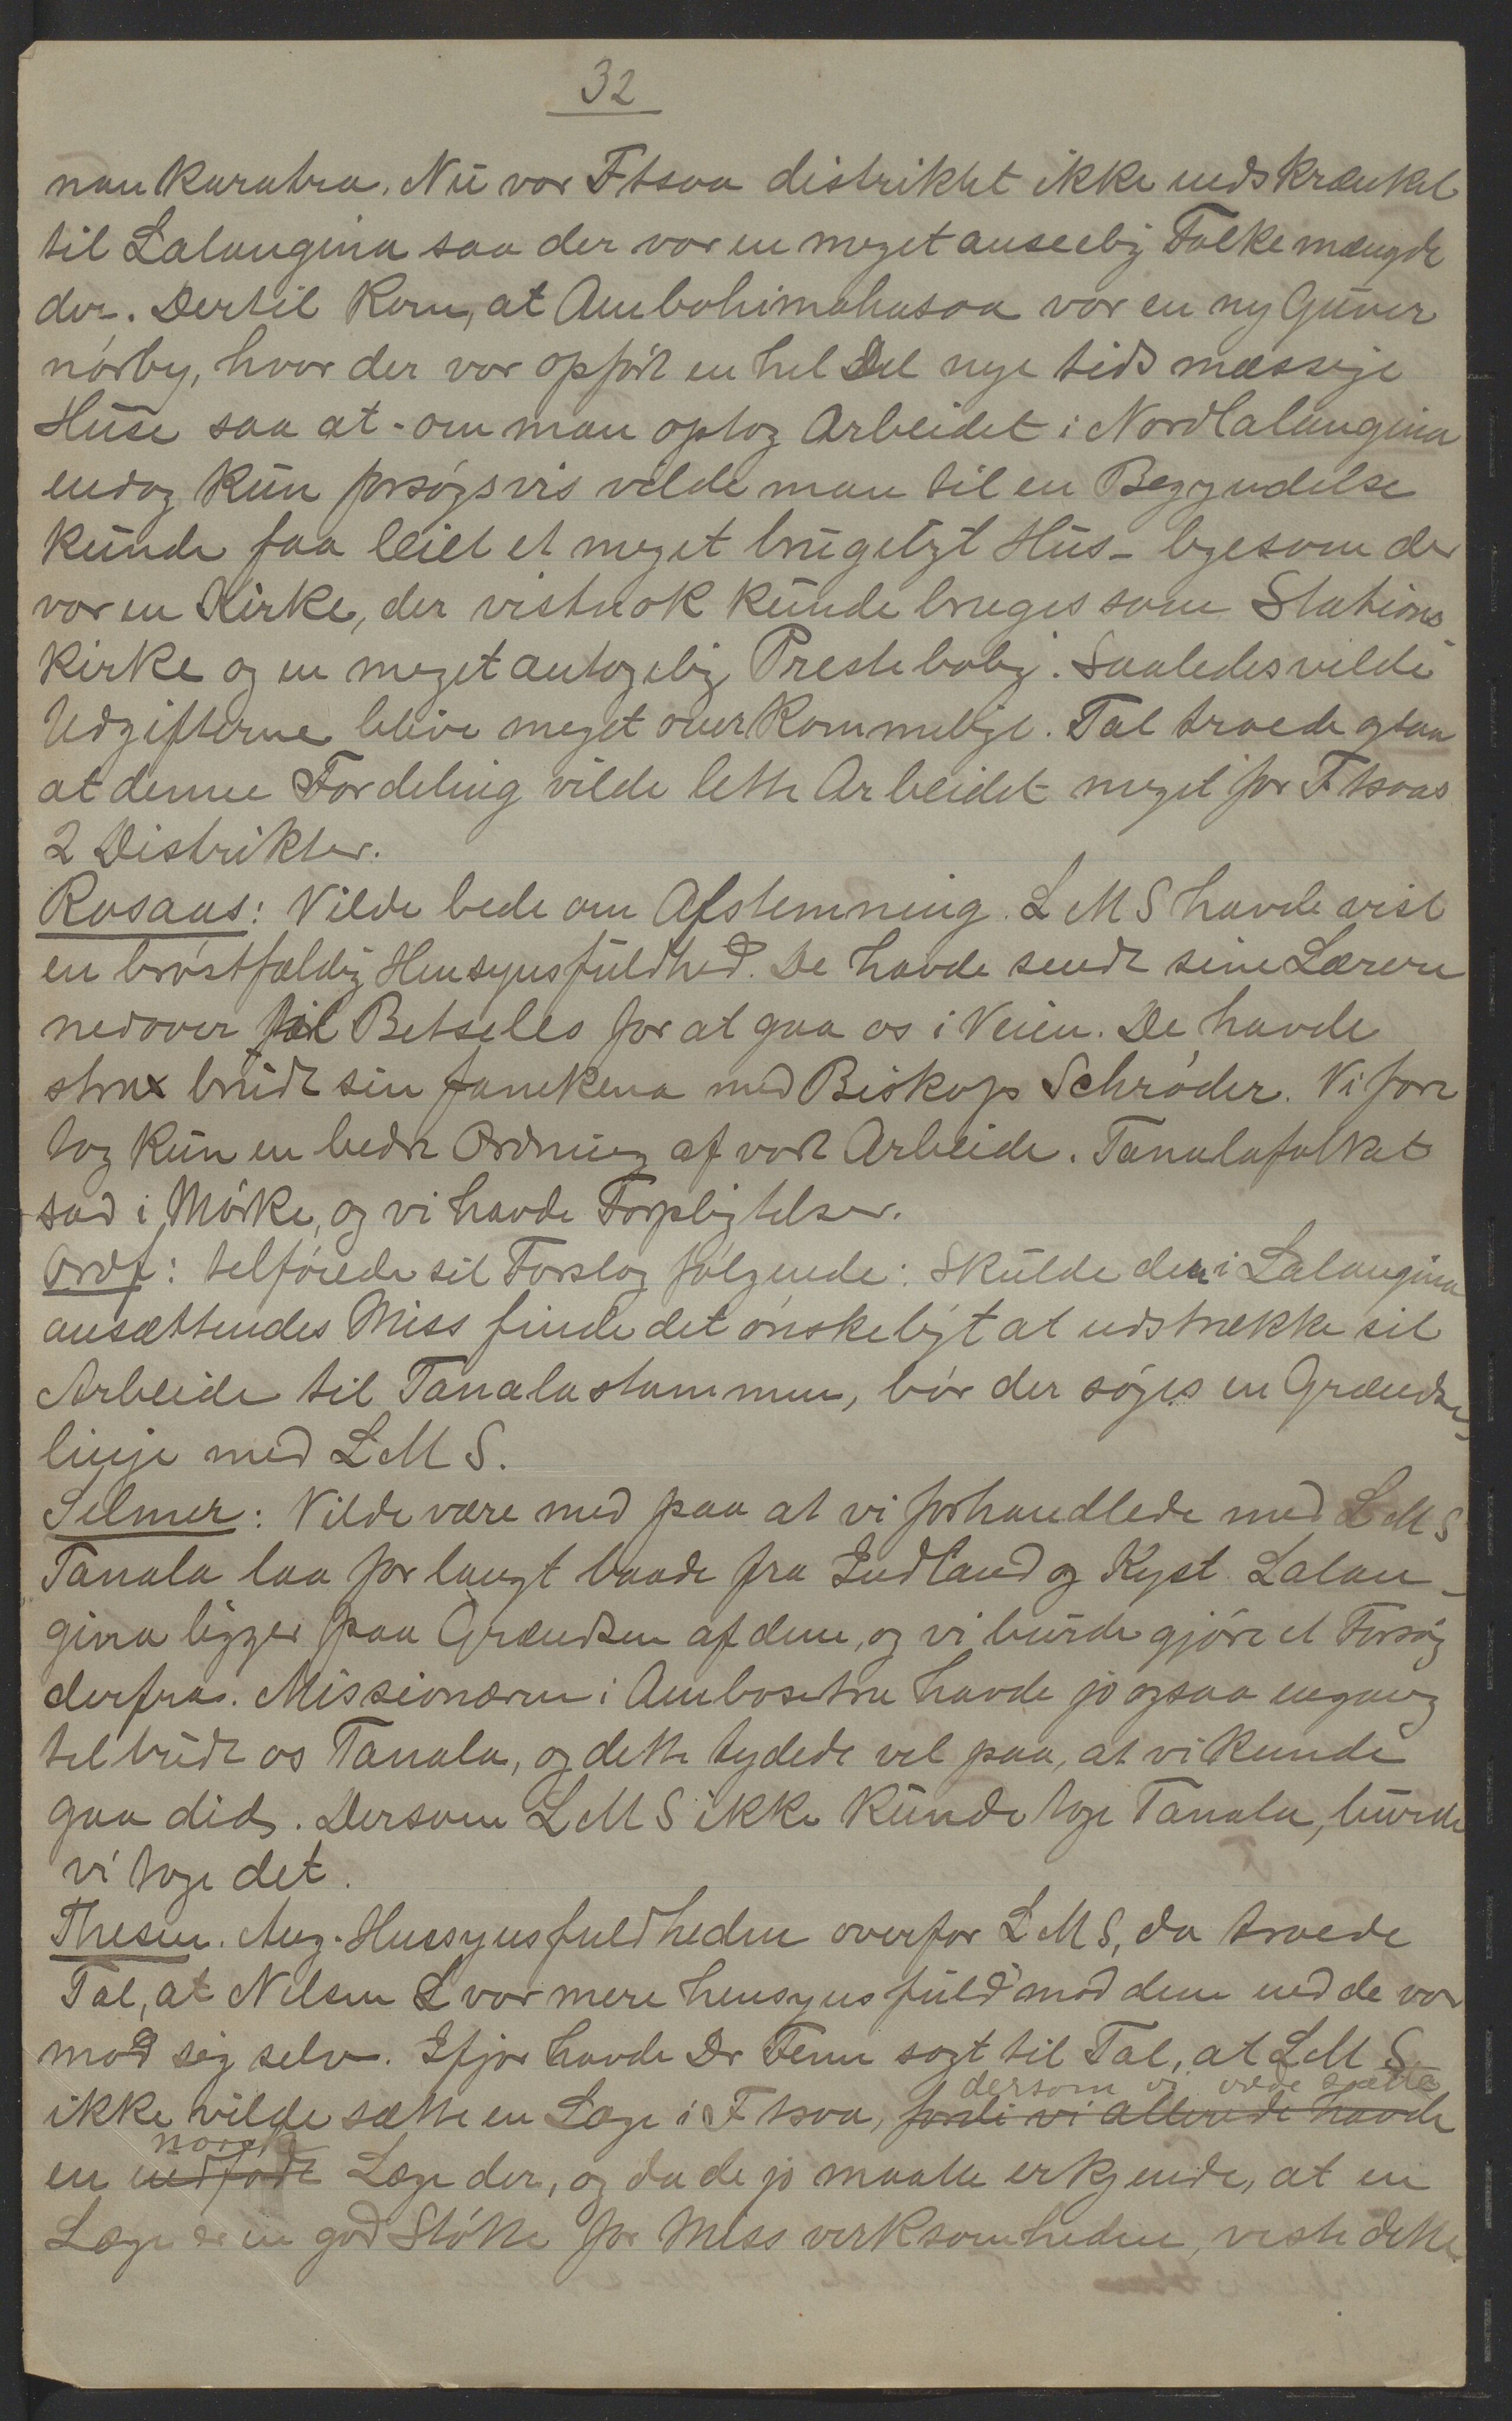 32
nankaratra. Nu var Ftsoa distriktet ikke indskrænket
til Lalangina saa der var en meget anseelig Folkemængde
der. Dertil kom, at Ambohimahasoa var en ny Guver
nørby, hvor der var opført en hel Del nye tidsmæssige
Huse saa at - om man optog Arbeidet i Nordlalangina
endog kun forsøgsvis vilde man til en Begyndelse
kunde faa leiet et meget brugeligt Hus - ligesom der
var en Kirke, der vistnok kunde bruges som Stations
kirke og en meget antagelig Prestebolig. Saaledes vilde
Udgifterne blive meget overkommelige. Tal troede ogsaa
at denne Fordeling vilde lette Arbeidet meget for Ftsoas
2 Distrikter.
Rosaas: Vilde bede om Afstemning. L M S havde vist
en brøstfældig Hensynsfuldhed. De havde sendt sine Lærere
nedover til Betsileo for at gaa os i Veien. De havde
strax brudt sin fanekena med Biskop Schrøder. Vi fore
tog kun en bedre Ordning af vort Arbeide. Tanalafolket
sad i Mørke, og vi havde Forpligtelser.
Ordf: tilføiede sit Forslag følgende: Skulde den i Lalangina
ansættendes Miss finde det ønskeligt at udstrække sit
Arbeide til Tanalastammen, bør der søges en Grændse
linje med L M S.
Selmer: Vilde være med paa at vi forhandlede med L M S
Tanala laa for langt baade fra Indland og Kyst. Lalan-
gina ligger paa Grændsen af dem, og vi burde gjøre et Forsøg
derfra. Missionæren i Ambositra havde jo ogsaa engang
tilbudt os Tanala, og dette tydede vel paa, at vi kunde
gaa did. Dersom L M S ikke kunde tage Tanala, burde
vi tage det.
Thesen. Ang. Hensynsfuldheden overfor L M S, da troede
Tal, at Nilsen L var mere hensynsfuld mod dem end de var
mod sig selv. Ifjor havde Dr Fenn sagt til Tal, at L M S
dersom vi vilde sætte
ikke vilde sætte en Læge i Ftsoa, fordi vi allerede havde
norsk
en indfødt Læge der, og da de jo maatte erkjende, at en
Læge er en god Støtte for Missvirksomheden, viste dette